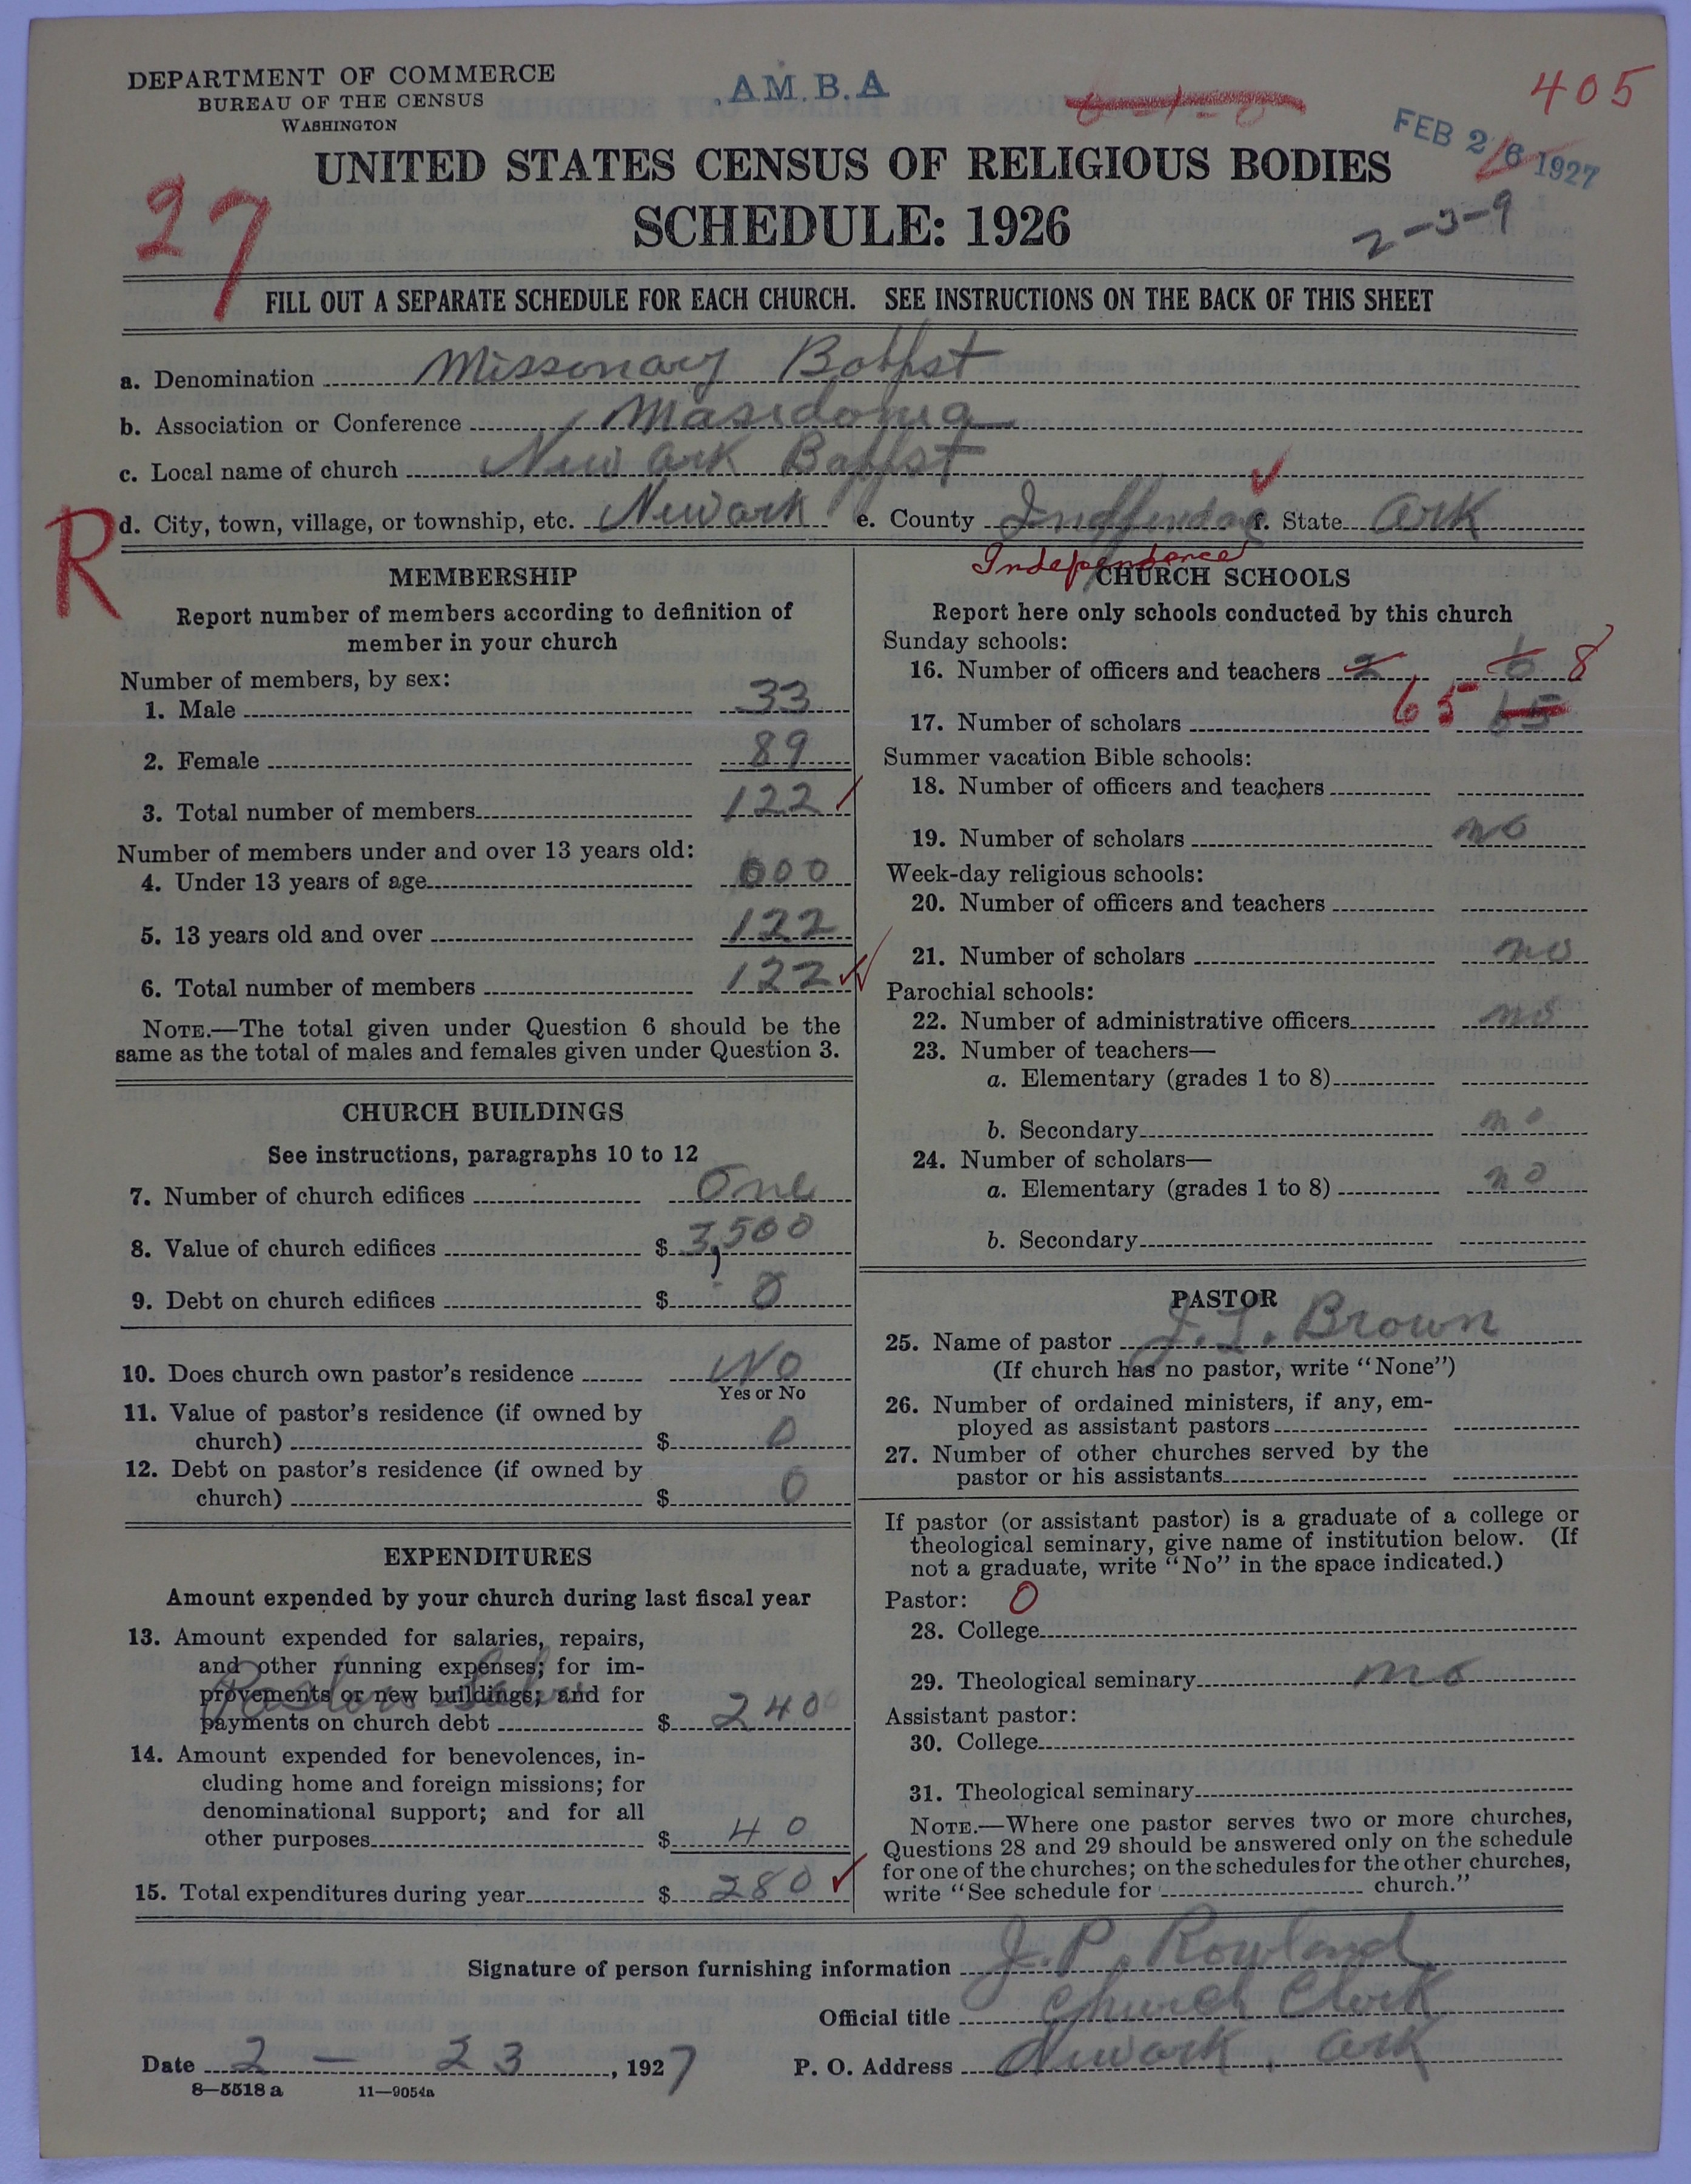 DEPARTMENT OF COMMERCE
BUREAU OF THE CENSUS
WASHINGTON
.AM.B.A
405
FEB 26 1927
UNITED STATES CENSUS OF RELIGIOUS BODIES
SCHEDULE: 1926
27
2-3-9
FILL OUT A SEPARATE SCHEDULE FOR EACH CHURCH. SEE INSTRUCTIONS ON THE BACK OF THIS SHEET
a. Denomination Missonary
b. Association or Conference Masidonia
c. Local name of church New ark
R
d. City, town, village, or township, etc. Newark e. County f. State Ark
Independence
MEMBERSHIP
Report number of members according to definition of
member in your church
Number of members, by sex:
1. Male 33
2. Female 89
3. Total number of members 122
Number of members under and over 13 years old:
4. Under 13 years of age 000
5. 13 years old and over 122
6. Total number of members 122
NOTE.—The total given under Question 6 should be the
same as the total of males and females given under Question 3.
CHURCH BUILDINGS
See instructions, paragraphs 10 to 12
7. Number of church edifices One
8. Value of church edifices $ 3,500
9. Debt on church edifices $ 0
10. Does church own pastor's residence No
Yes or No
11. Value of pastor's residence (if owned by
church) $ 0
12. Debt on pastor's residence (if owned by
church) $ 0
EXPENDITURES
Amount expended by your church during last fiscal year
13. Amount expended for salaries, repairs,
and other running expenses; for im-
provements or new buildings; and for
Pastor
payments on church debt $ 240
14. Amount expended for benevolences, in-
cluding home and foreign missions; for
denominational support; and for all
other purposes $ 40
15. Total expenditures during year $ 280
CHURCH SCHOOLS
Report here only schools conducted by this church
Sunday schools:
16. Number of officers and teachers 2 6 8
17. Number of scholars 65 65
Summer vacation Bible schools:
18. Number of officers and teachers
19. Number of scholars no
Week-day religious schools:
20. Number of officers and teachers
21. Number of scholars no
Parochial schools:
22. Number of administrative officers no
23. Number of teachers—
a. Elementary (grades 1 to 8)
b. Secondary no
24. Number of scholars—
a. Elementary (grades 1 to 8) no
b. Secondary
PASTOR
25. Name of pastor J. L. Brown
(If church has no pastor, write "None")
26. Number of ordained ministers, if any, em-
ployed as assistant pastors
27. Number of other churches served by the
pastor or his assistants
If pastor (or assistant pastor) is a graduate of a college or
theological seminary, give name of institution below. (If
not a graduate, write "No" in the space indicated.)
Pastor: 0
28. College
29. Theological seminary no
Assistant pastor:
30. College
31. Theological seminary
NOTE.—Where one pastor serves two or more churches,
Questions 28 and 29 should be answered only on the schedule
for one of the churches; on the schedules for the other churches,
write "See schedule for church."
Signature of person furnishing information J. P. Rowland
Official title Church Clerk
Date 2 - 23, 1927 P. O. Address Newark, Ark
8—5518 a 11—9054a